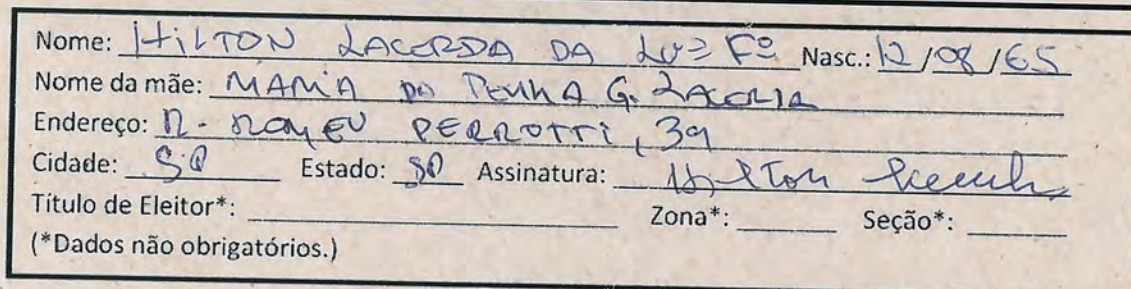 Nome: HILTON LACERDA DA LUZ Fº Nasc.: 12/08/65
Nome da mãe: MARIA DA PENHA G. LACERDA
Endereço: R. ROMEU PERROTTI, 39
Cidade: SP Estado: SP Assinatura: Hilton
Título de Eleitor*: Zona*: Seção*:
(*Dados não obrigatórios.)